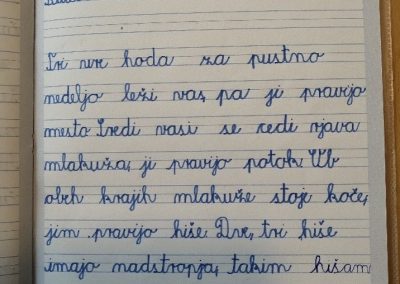 Tri ure hoda za pustno
nedeljo leži vas, pa ji pravijo
mesto. Sredi vasi se cedi rjava
mlakuža, ji pravijo potok. Ob
obeh krajih mlakuže stoje koče,
jim pravijo hiše. Dve, tri hiše
imajo nadstropja, takim hišam